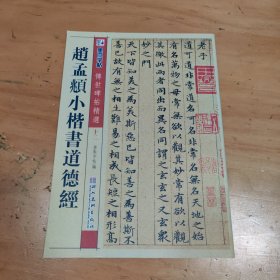 墨点字帖
傳世碑帖精選
趙孟頫小楷書道德經
老子
道可道非常道名可名非常名無名天地之始
有名萬物之母常無欲以觀其妙常有欲以觀
其徼此兩者同出而異名同謂之玄玄之又玄衆
妙之門
天下皆知美之為美斯惡已皆知善之為善斯不
善已故有無之相生難易之相成長短之相形高